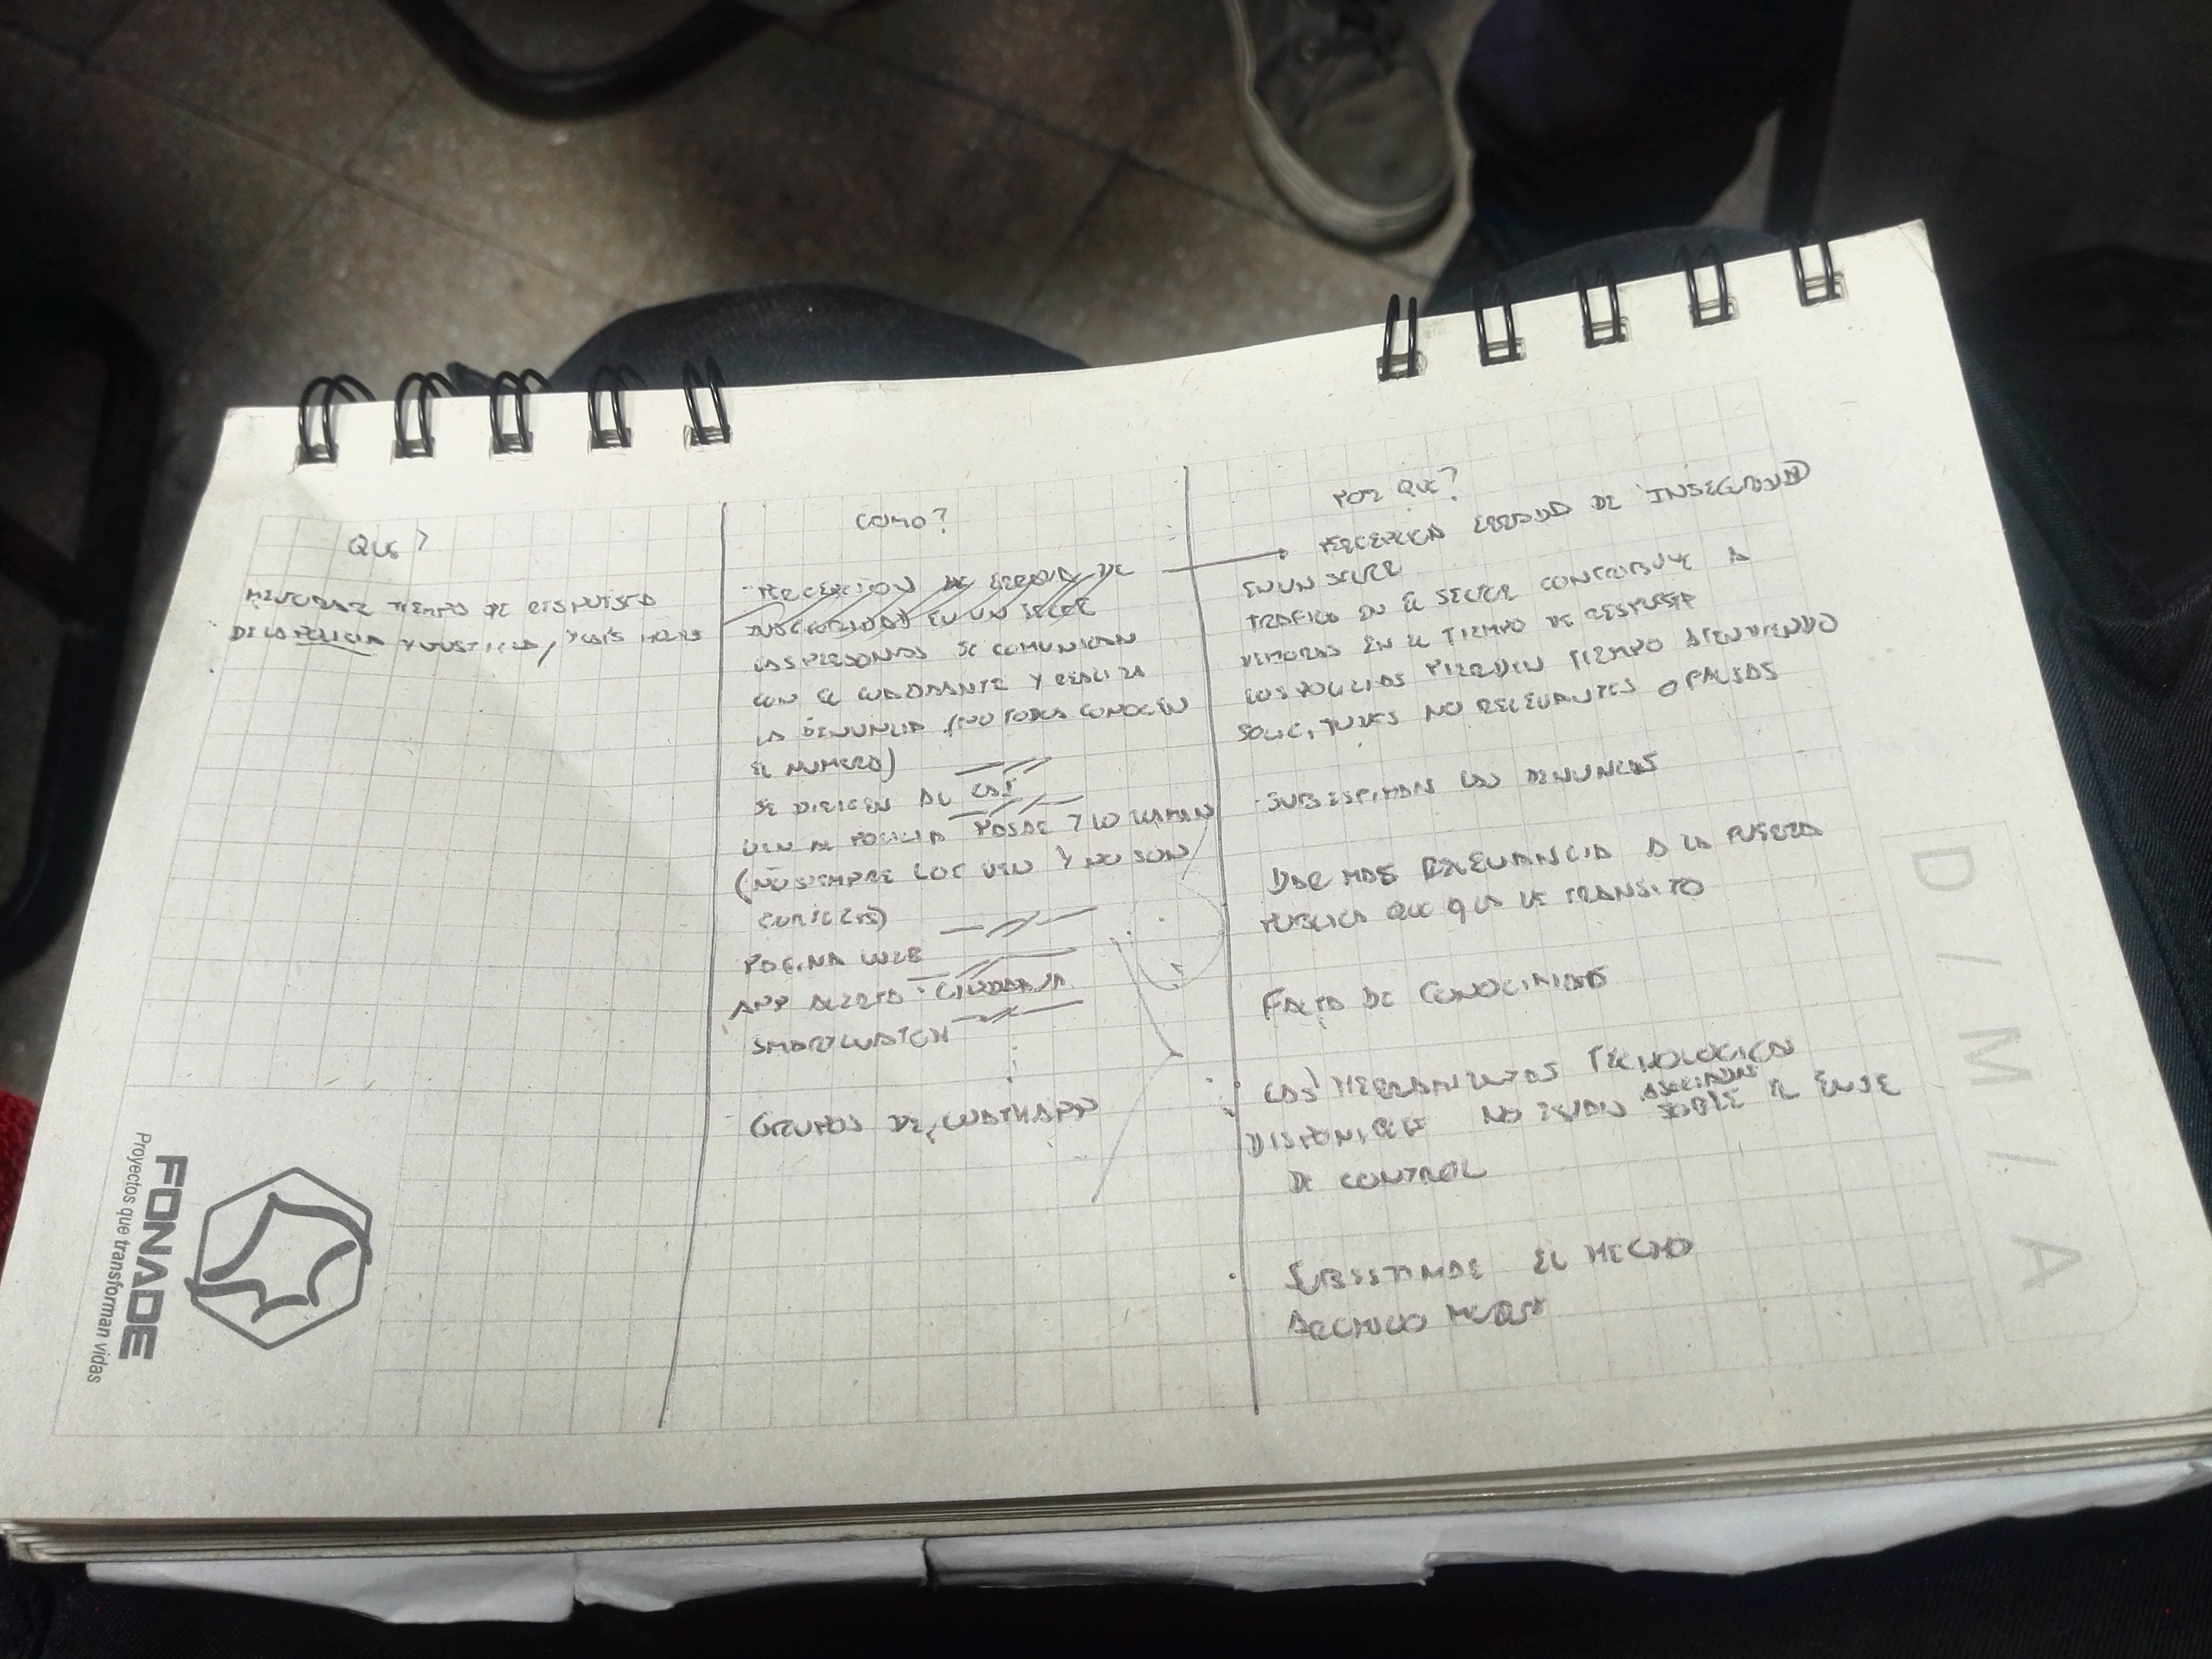 QUE?
MEJORAR TIEMPO DE RESPUESTA
DE LA POLICIA Y JUSTICIA,
COMO?
PERCEPCION DE ERRADA DE
INSEGURIDAD EN UN SECTOR
LAS PERSONAS SE COMUNICAN
CON EL CUADRANTE Y REALIZA
LA DENUNCIA (NO TODOS CONOCEN
EL NUMERO)
SE DIRIGEN AL CAI
VEN AL POLICIA Y LO LLAMAN
(NO SIEMPRE LOS VEN Y NO SON
PAGINA WEB
APP ALERTA CIUDADANA
SMARTWATCH
GRUPOS DE WATHAPP
POR QUE?
PERCEPCION ERRADA DE INSEGURIDAD
EN UN SECTOR
TRAFICO EN EL SECTOR CONTRIBUYE A
DEMORAS EN EL TIEMPO DE RESPUESTA
LOS POLICIAS PIERDEN TIEMPO ATENDIENDO
SOLICITUDES NO RELEVANTES O FALSAS
SUBESTIMAN LAS DENUNCIAS
DAR MAS RELEVANCIA A LA FUERZA
PUBLICA QUE A LA DE TRANSITO
FALTA DE CONOCIMIENTO
LAS HERRAMIENTAS TECNOLOGICAS
DISPONIBLES NO ESTAN ASOCIADAS SOBRE EL ENTE
DE CONTROL
SUBESTIMAR EL HECHO
ARCHIVO MUERTO
D / M / A
FONADE
Proyectos que transforman vidas